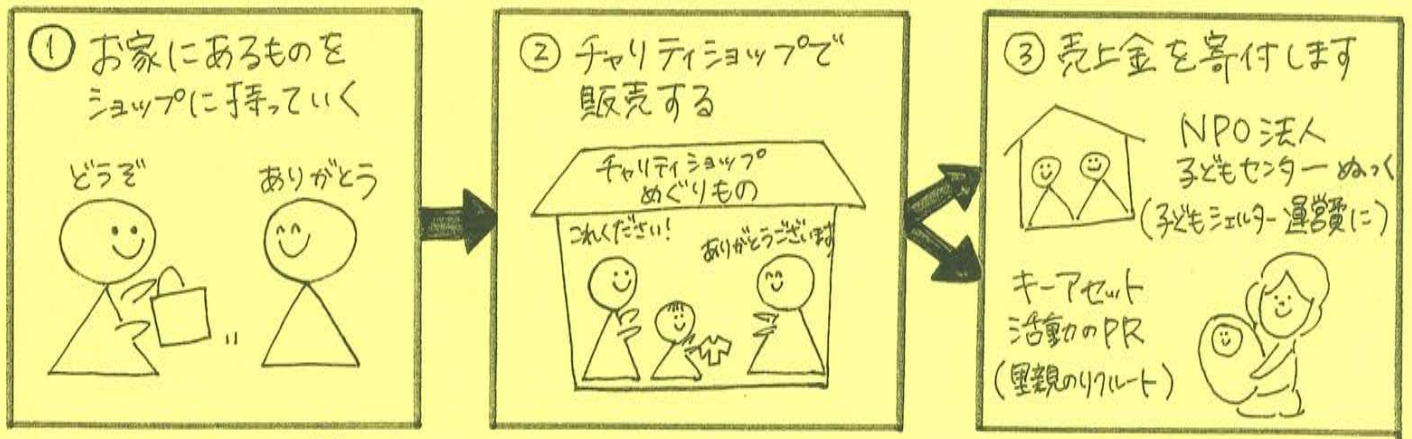 ① お家にあるものを
ショップに持っていく
どうぞ
ありがとう
② チャリティショップで
販売する
チャリティショップ
めぐりもの
これください!
ありがとうございます
③ 売上金を寄付します
NPO法人
子どもセンターぬっく
(子どもシェルター運営費に)
キーアセット
活動のPR
(里親のリクルート)